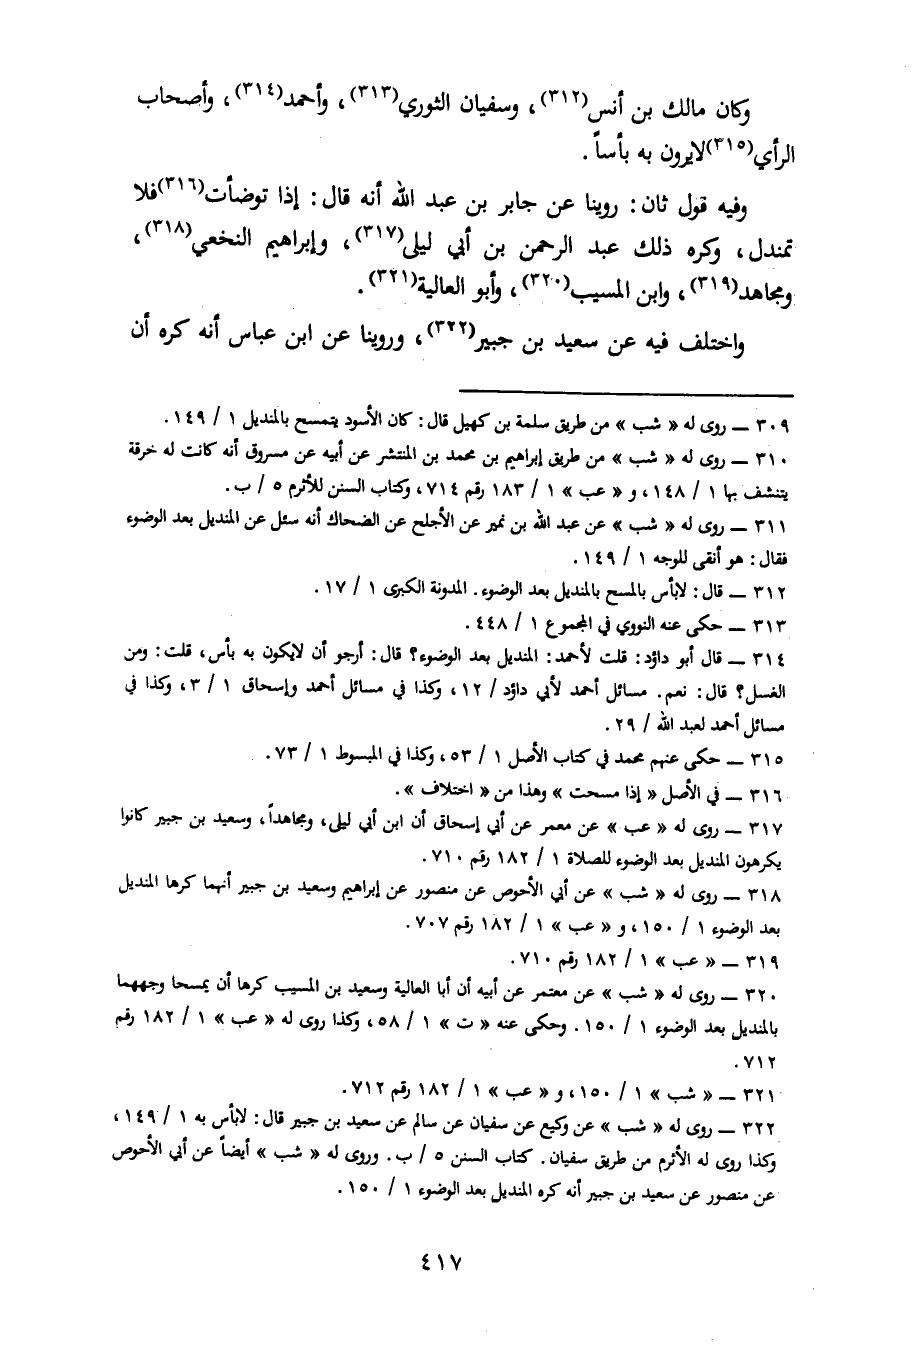 وكان مالك بن أنس(٣١٢)، وسفيان الثوري(٣١٣)، وأحمد(٣١٤)، وأصحاب
الرأي(٣١٥)لايرون به بأساً.
وفيه قول ثان: روينا عن جابر بن عبد الله أنه قال: إذا توضأت(٣١٦)فلا
تمندل، وكره ذلك عبد الرحمن بن أبي ليلى(٣١٧)، وإبراهيم النخعي(٣١٨)،
ومجاهد(٣١٩)، وابن المسيب(٣٢٠)، وأبو العالية(٣٢١).
واختلف فيه عن سعيد بن جبير(٣٢٢)، وروينا عن ابن عباس أنه كره أن
٣٠٩ ــ روى له « شب » من طريق سلمة بن كهيل قال: كان الأسود يتمسح بالمنديل ١ / ١٤٩.
٣١٠ ــ روى له « شب » من طريق إبراهيم بن محمد بن المنتشر عن أبيه عن مسروق أنه كانت له خرقة
يتنشف بها ١ / ١٤٨، و « عب » ١ / ١٨٣ رقم ٧١٤، وكتاب السنن للأثرم ٥ / ب.
٣١١ ــ روى له « شب » عن عبد الله بن نمير عن الأجلح عن الضحاك أنه سئل عن المنديل بعد الوضوء
فقال: هو أنقى للوجه ١ / ١٤٩.
٣١٢ ــ قال: لابأس بالمسح بالمنديل بعد الوضوء. المدونة الكبرى ١ / ١٧.
٣١٣ ــ حكى عنه النووي في المجموع ١ / ٤٤٨.
٣١٤ ــ قال أبو داؤد: قلت لأحمد: المنديل بعد الوضوء؟ قال: أرجو أن لايكون به بأس، قلت: ومن
الغسل؟ قال: نعم. مسائل أحمد لأبي داؤد / ١٢، وكذا في مسائل أحمد وإسحاق ١ / ٣، وكذا في
مسائل أحمد لعبد الله / ٢٩.
٣١٥ ــ حكى عنهم محمد في كتاب الأصل ١ / ٥٣، وكذا في المبسوط ١ / ٧٣.
٣١٦ ــ في الأصل « إذا مسحت » وهذا من « اختلاف ».
٣١٧ ــ روى له « عب » عن معمر عن أبي إسحاق أن ابن أبي ليلى، ومجاهداً، وسعيد بن جبير كانوا
يكرهون المنديل بعد الوضوء للصلاة ١ / ١٨٢ رقم ٧١٠.
٣١٨ ــ روى له « شب » عن أبي الأحوص عن منصور عن إبراهيم وسعيد بن جبير أنهما كرها المنديل
بعد الوضوء ١ / ١٥٠، و « عب » ١ / ١٨٢ رقم ٧٠٧.
٣١٩ ــ « عب » ١ / ١٨٢ رقم ٧١٠.
٣٢٠ ــ روى له « شب » عن معتمر عن أبيه أن أبا العالية وسعيد بن المسيب كرها أن يمسحا وجههما
بالمنديل بعد الوضوء ١ / ١٥٠. وحكى عنه « ت » ١ / ٥٨، وكذا روى له « عب » ١ / ١٨٢ رقم
٧١٢.
٣٢١ ــ « شب » ١ / ١٥٠، و « عب » ١ / ١٨٢ رقم ٧١٢.
٣٢٢ ــ روى له « شب » عن وكيع عن سفيان عن سالم عن سعيد بن جبير قال: لابأس به ١ / ١٤٩،
وكذا روى له الأثرم من طريق سفيان. كتاب السنن ٥ / ب. وروى له « شب » أيضاً عن أبي الأحوص
عن منصور عن سعيد بن جبير أنه كره المنديل بعد الوضوء ١ / ١٥٠.
٤١٧